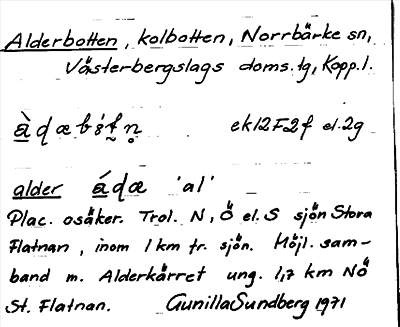 Alderbotten, kolbotten, Norrbärke sn,
Västerbergslags doms.tg, Kopp.l.
ek12F2f el.2g
alder ádæ 'al'
Plac. osäker. Trol. N, Ö el. S sjön Stora
Flatnan, inom 1 km fr. sjön. Möjl. sam-
band m. Alderkärret ung. 1,7 km NÖ
St. Flatnan. Gunilla Sundberg 1971